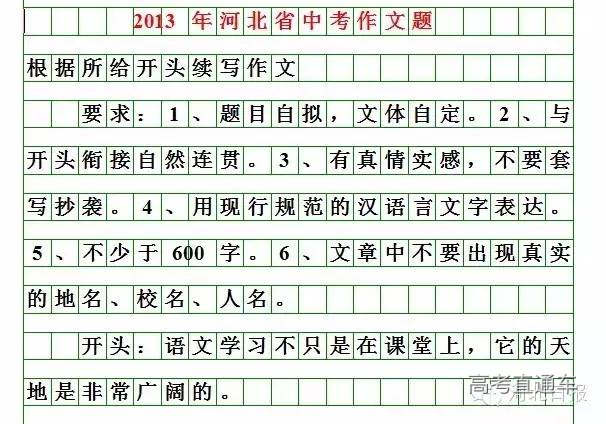 2013 年河北省中考作文题
根据所给开头续写作文
要求：1、题目自拟，文体自定。2、与
开头衔接自然连贯。3、有真情实感，不要套
写抄袭。4、用现行规范的汉语言文字表达。
5、不少于 600 字。6、文章中不要出现真实
的地名、校名、人名。
开头：语文学习不只是在课堂上，它的天
地是非常广阔的。
高考直通车
河北日报